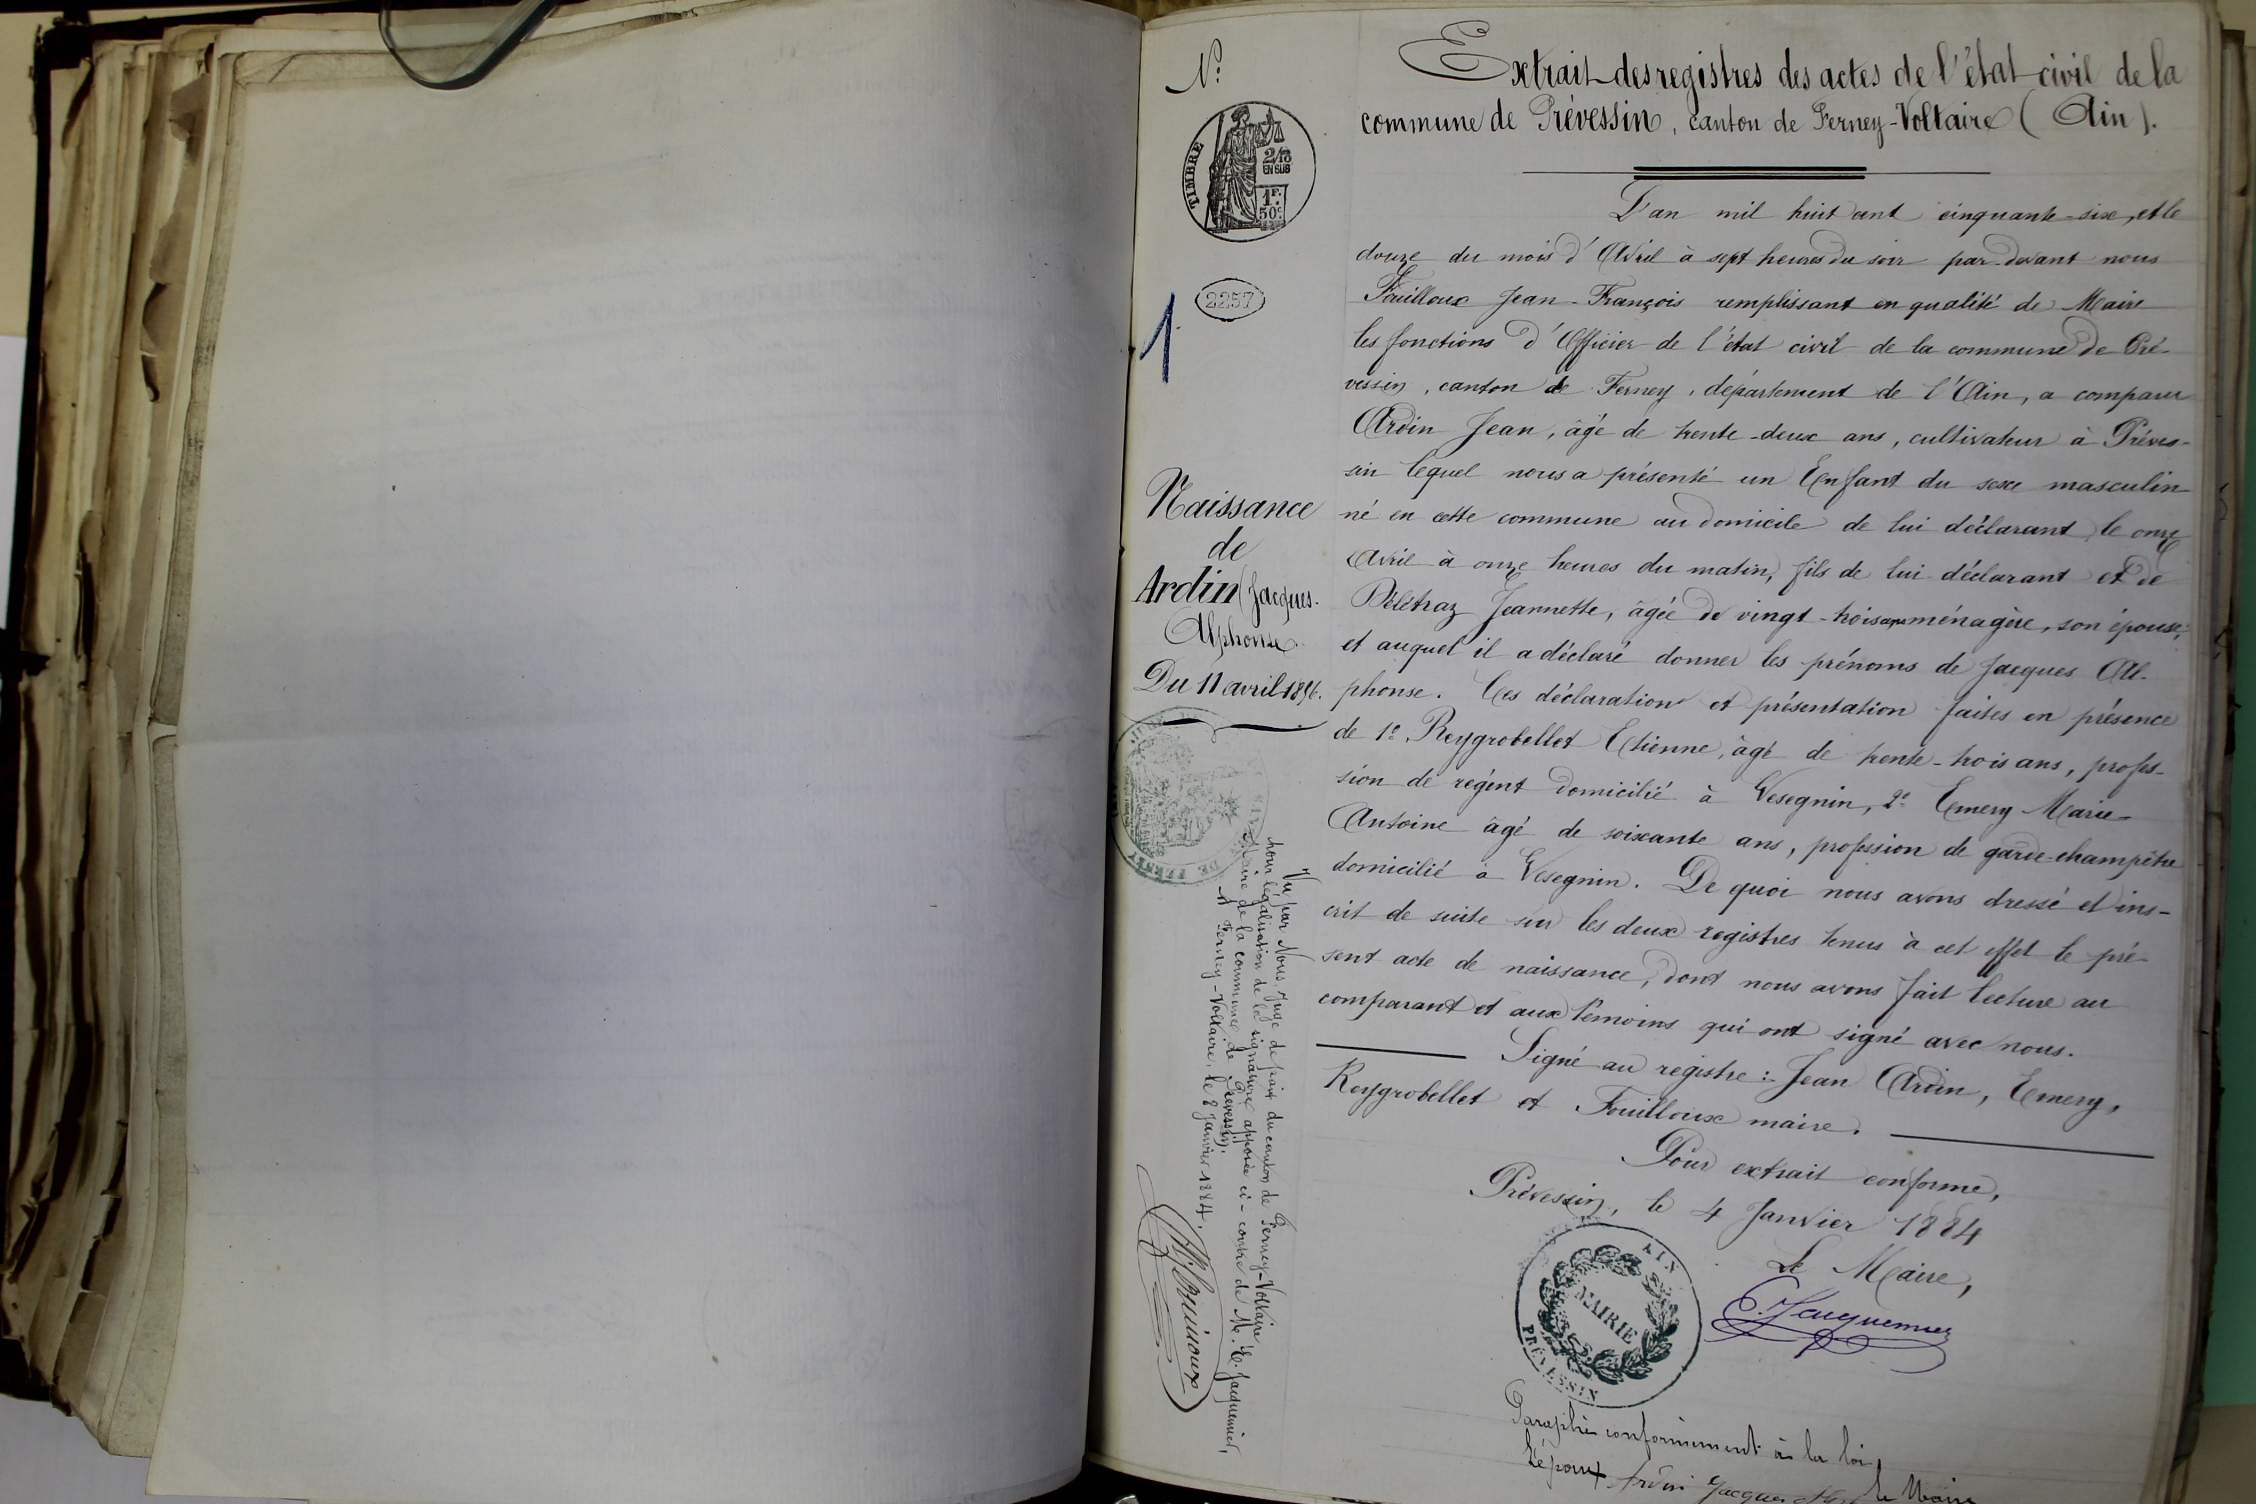 Extrait des registres des actes de l'état civil de la
commune de Prévessin, canton de Ferney-Voltaire (Ain).
N.°
TIMBRE
2/10
EN SUS
1F.
50c
2257
1
Naissance
de
Ardin (Jacques-
Alphonse.
Du 11 avril 1856.
L'an mil huit cent cinquante-six, et le
douze du mois d'Avril à sept heures du soir par-devant nous
Fouilloux Jean-François remplissant en qualité de Maire
les fonctions d'Officier de l'état civil de la commune de Pré-
vessin, canton de Ferney, département de l'Ain, a comparu
Ardin Jean, âgé de trente-deux ans, cultivateur à Préves-
sin lequel nous a présenté un Enfant du sexe masculin
né en cette commune au domicile de lui déclarant, le onze
Avril à onze heures du matin, fils de lui déclarant et de
Pélétraz Jeannette, âgée de vingt-trois ans ménagère, son épouse,
et auquel il a déclaré donner les prénoms de Jacques Al-
phonse. Ces déclaration et présentation faites en présence
de 1° Reygrobellet Etienne, âgé de trente-trois ans, profes-
sion de régent domicilié à Vesegnin, 2° Emery Marie-
Antoine âgé de soixante ans, profession de garde-champêtre
domicilié à Vesegnin. De quoi nous avons dressé et ins-
crit de suite sur les deux registres tenus à cet effet le pré-
sent acte de naissance, dont nous avons fait lecture au
comparant et aux témoins qui ont signé avec nous.
Signé au registre: Jean Ardin, Emery,
Reygrobellet et Fouilloux maire.
Pour extrait conforme,
Prévessin, le 4 Janvier 1884
Le Maire,
E. Jacquemier
AIN
MAIRIE
PRÉVESSIN
Paraphé conformément à la loi
L'époux Ardin Jacques Le Maire
DE FERNEY
Vu par Nous, Juge de paix du canton de Ferney-Voltaire
pour légalisation de la signature apposée ci-contre de M. E. Jacquemier,
Maire de la commune de Prévessin.
A Ferney-Voltaire, le 8 Janvier 1884.